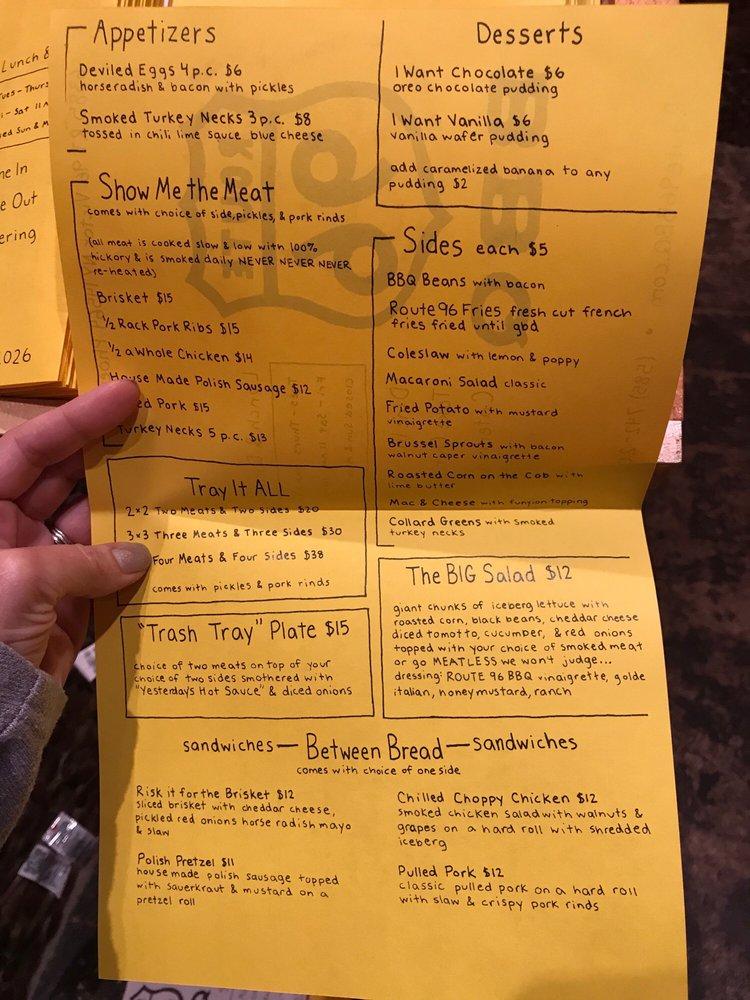 Appetizers
Deviled Eggs 4 p.c. $6
horseradish & bacon with pickles
Smoked Turkey Necks 3 p.c. $8
tossed in chili lime sauce blue cheese
Show Me the Meat
comes with choice of side, pickles, & pork rinds
(all meat is cooked slow & low with 100%
hickory & is smoked daily NEVER NEVER NEVER
re-heated)
Brisket $15
1/2 Rack Pork Ribs $15
1/2 a Whole Chicken $14
House Made Polish Sausage $12
ed Pork $15
Turkey Necks 5 p.c. $13
Tray It ALL
2x2 Two Meats & Two Sides $20
3x3 Three Meats & Three Sides $30
Four Meats & Four Sides $38
comes with pickles & pork rinds
"Trash Tray" Plate $15
choice of two meats on top of your
choice of two sides smothered with
"Yesterday's Hot Sauce" & diced onions
Desserts
I Want Chocolate $6
oreo chocolate pudding
I Want Vanilla $6
vanilla wafer pudding
add caramelized banana to any
pudding $2
Sides each $5
BBQ Beans with bacon
Route 96 Fries fresh cut french
fries fried until gbd
Coleslaw with lemon & poppy
Macaroni Salad classic
Fried Potato with mustard
vinaigrette
Brussel Sprouts with bacon
walnut caper vinaigrette
Roasted Corn on the Cob with
lime butter
Mac & Cheese with funyion topping
Collard Greens with smoked
turkey necks
The BIG Salad $12
giant chunks of iceberg lettuce with
roasted corn, black beans, cheddar cheese
diced tomotto, cucumber, & red onions
topped with your choice of smoked meat
or go MEATLESS we won't judge...
dressing: ROUTE 96 BBQ vinaigrette, golde
italian, honey mustard, ranch
sandwiches — Between Bread — sandwiches
comes with choice of one side
Risk it for the Brisket $12
sliced brisket with cheddar cheese,
pickled red onions horse radish mayo
& slaw
Polish Pretzel $11
house made polish sausage topped
with sauerkraut & mustard on a
pretzel roll
Chilled Choppy Chicken $12
smoked chicken salad with walnuts &
grapes on a hard roll with shredded
iceberg
Pulled Pork $12
classic pulled pork on a hard roll
with slaw & crispy pork rinds
Lunch &
ues - Thurs
- Sat 11 A
ed Sun & M
ne In
e Out
ering
2026